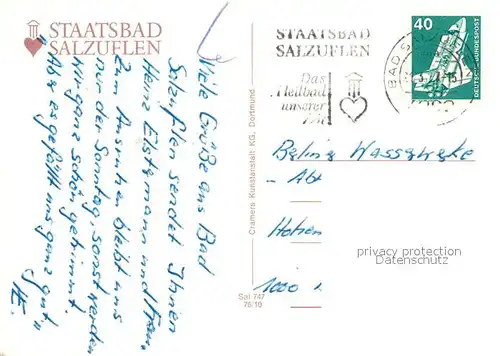 STAATSBAD
SALZUFLEN
Viele Grüße aus Bad
Salzuflen sendet Ihnen
Heinz Eistmann und Frau.
Zum Ausruhen bleibt uns
nur der Sonntag, sonst werden
wir ganz schön getrimmt.
Aber es gefällt uns ganz gut
STAATSBAD
SALZUFLEN
Das
Heilbad
unserer
Zeit
BAD S
40
DEUTSCHE BUNDESPOST
Cramers Kunstanstalt KG, Dortmund
Sal 747
Berliner Wasserwerke
- Abt
Hohen
1000
privacy protection
Datenschutz